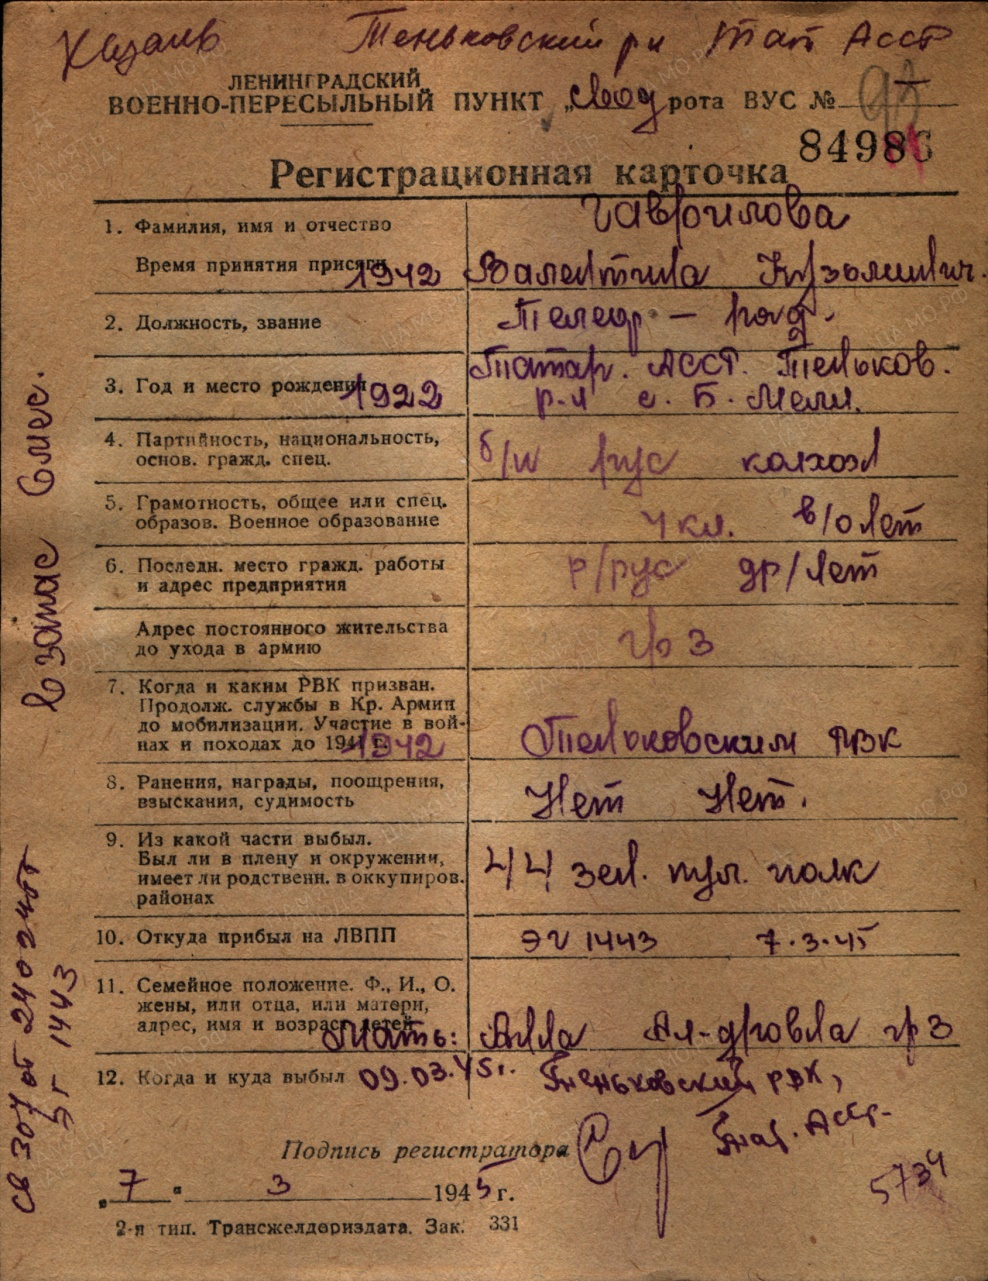 Казань Теньковский рн Тат Асст
ЛЕНИНГРАДСКИЙ
ВОЕННО-ПЕРЕСЫЛЬНЫЙ ПУНКТ „свод рота ВУС №
84986
Регистрационная карточка
1. Фамилия, имя и отчество Гаврилова
Время принятия присяги 1942 Валентина Кузьминич.
2. Должность, звание Телеф - ряд.
3. Год и место рождения 1922 Татар. АССТ. Теньков.
р-н с. Б. Мели.
4. Партийность, национальность, б/п рус колхоз
основ. гражд. спец.
5. Грамотность, общее или спец. 4 кл.
образов. Военное образование
6. Последн. место гражд. работы р/рус др/нет
и адрес предприятия
Адрес постоянного жительства гр 3
до ухода в армию
7. Когда и каким РВК призван.
Продолж. службы в Кр. Армии
до мобилизации. Участие в вой-
нах и походах до 1941 г. 1942 Теньковским РВК
8. Ранения, награды, поощрения, Нет Нет.
взыскания, судимость
9. Из какой части выбыл.
Был ли в плену и окружении, 44 зен. пул. полк
имеет ли родственн. в оккупиров.
районах
10. Откуда прибыл на ЛВПП ЭГ 1443 7.3.45
11. Семейное положение. Ф., И., О.
жены, или отца, или матери,
адрес, имя и возраст детей Мать: Анна Ал-дровна гр 3
12. Когда и куда выбыл 09.03.45г. Теньковский РВК,
Тат. Асст.
Подпись регистратора
„7“ 3 1945 г.
5734
2-я тип. Трансжелдориздата. Зак. 331
В запас 6 мес.
св 307 от 24 02 45
эг 1443